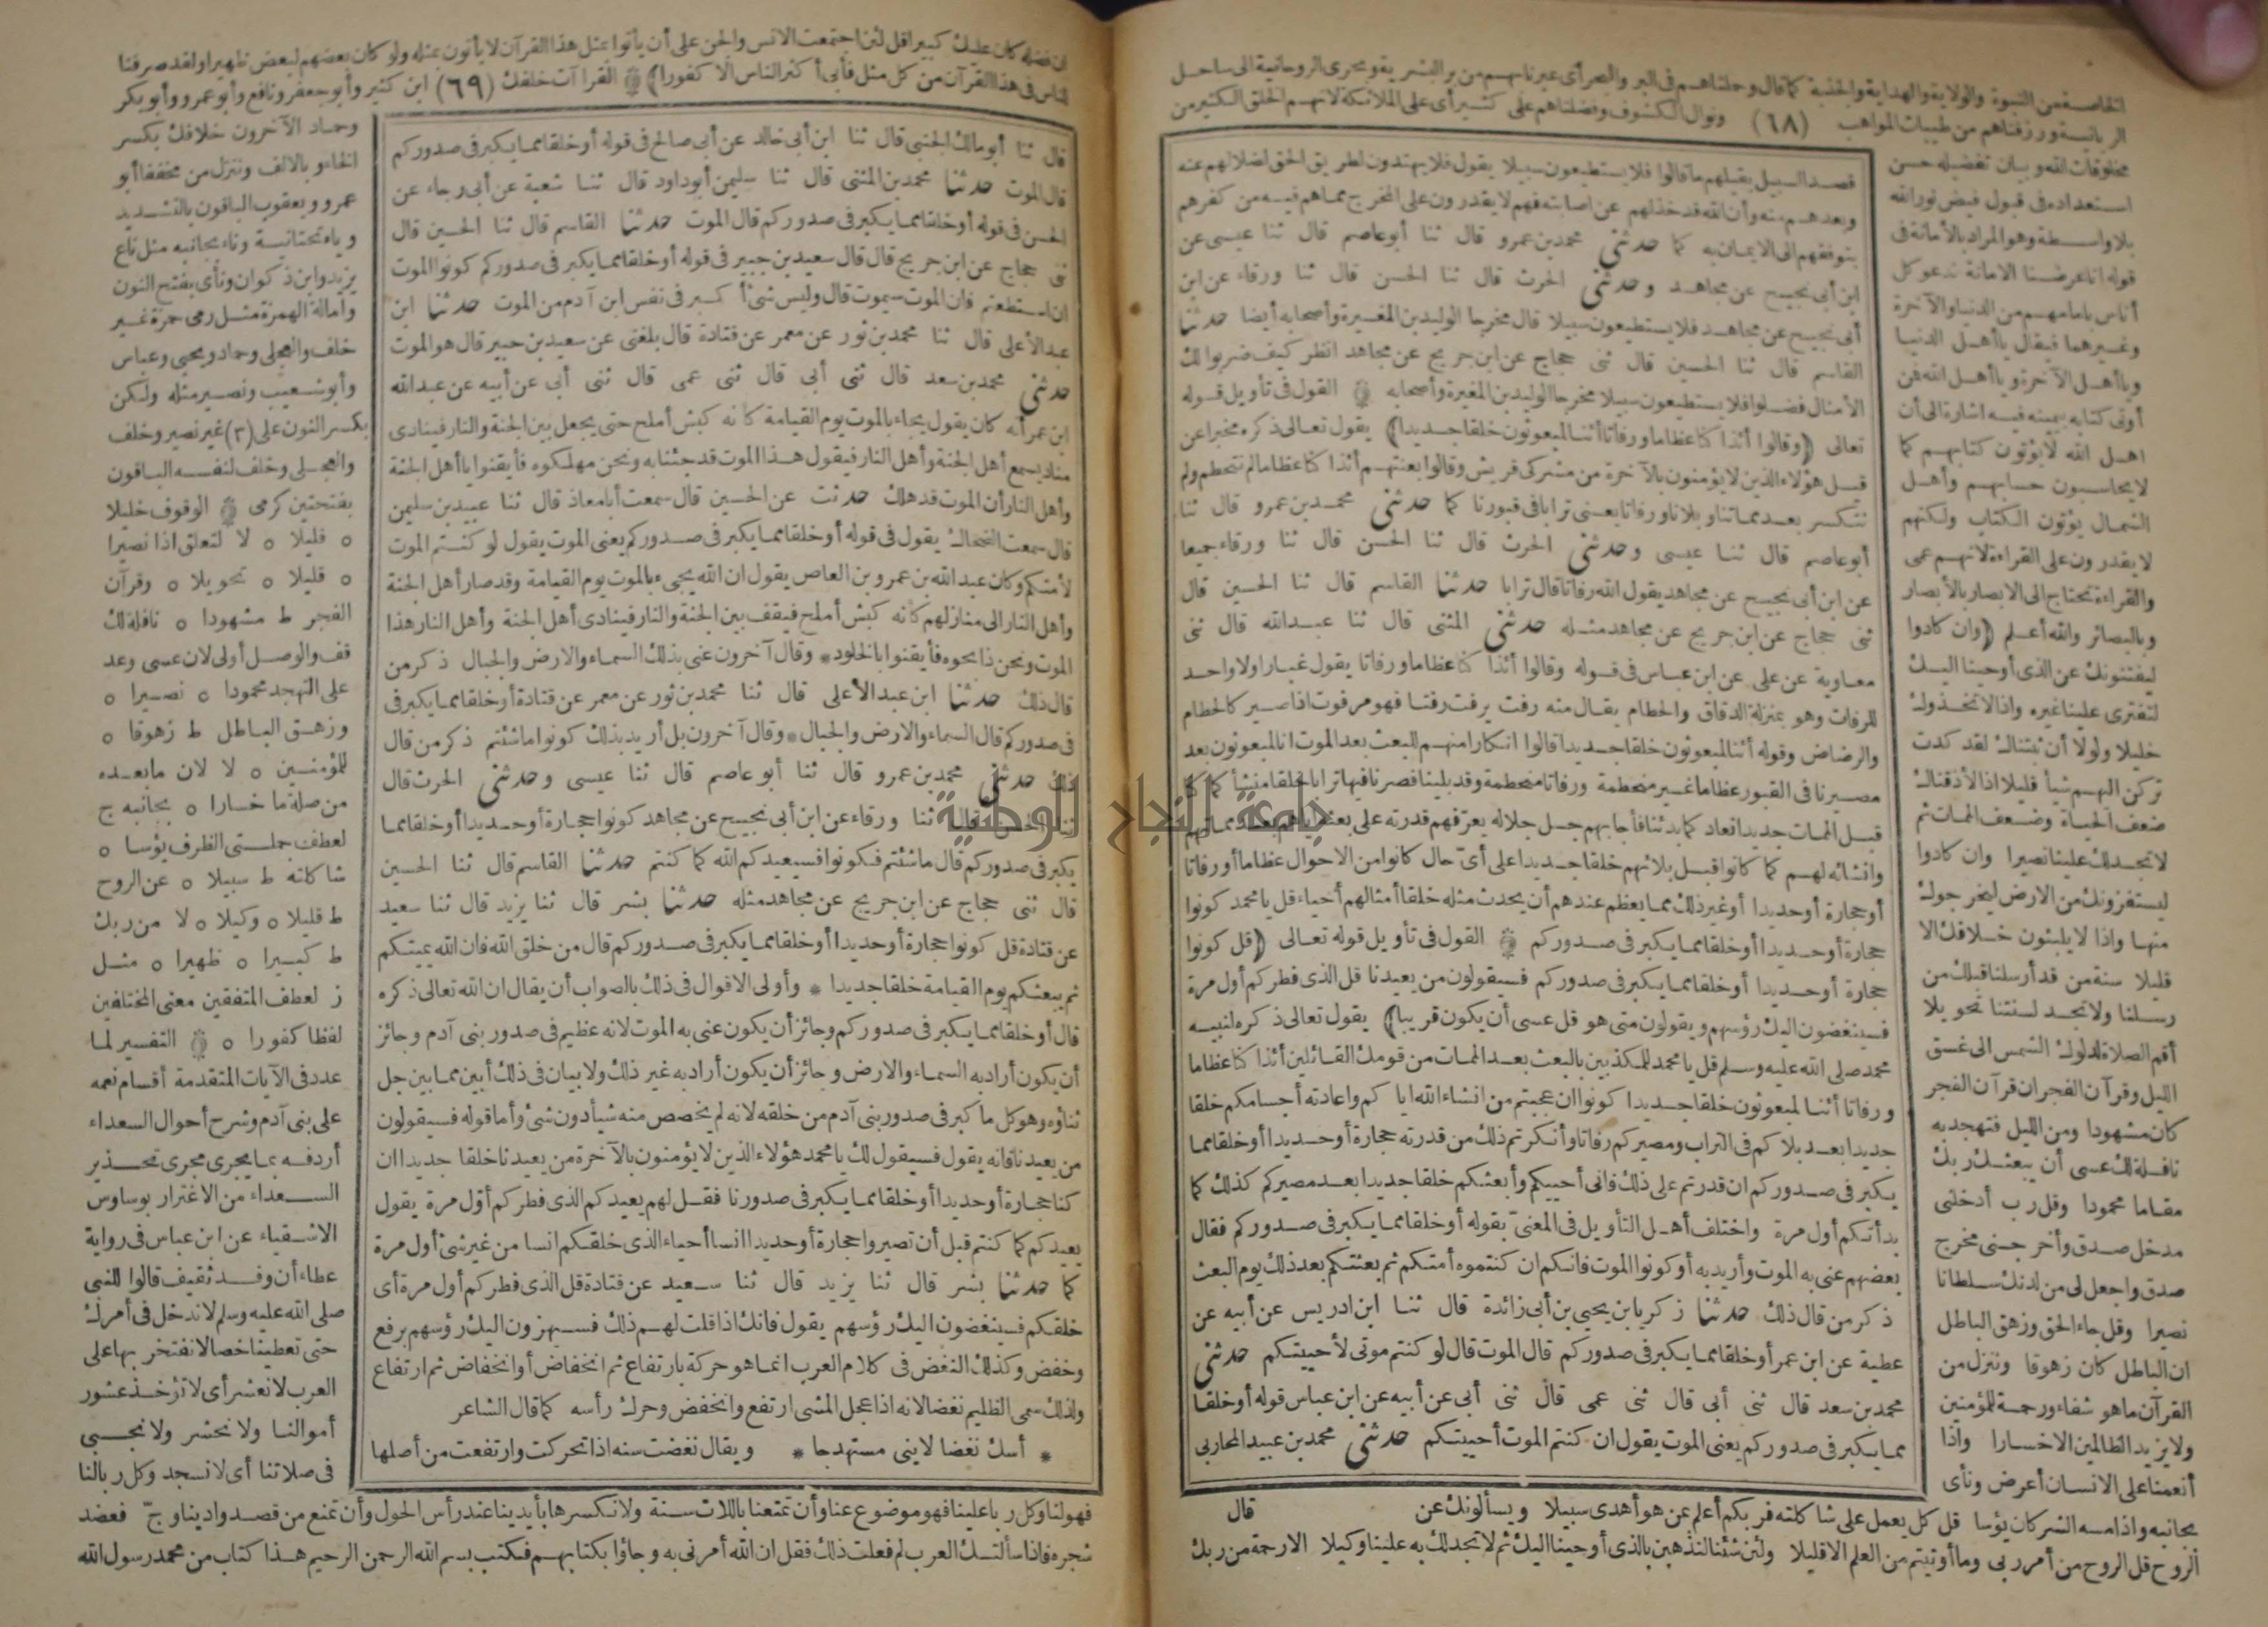 الخاصة من النبوة والولاية والهداية والجذبة كما قال وحملناهم في البر والبحر أى عبرنا بهم من بر البشرية وبحرى الروحانية الى ساحل
الربانية ورزقناهم من طيبات المواهب (٦٨) ونوال الكشوف وفضلناهم على كثير أى على الملائكة لانهم الخلق الكثير من
مخلوقات الله وبيان تفضيله حسن
استعداده فى قبول فيض نور الله
بلا واسطة وهو المراد بالأمانة فى
قوله انا عرضنا الامانة ندعو كل
أناس بامامهم من الدنيا والآخرة
وغيرهما فيقال يا أهل الدنيا
ويا أهل الآخرة ويا أهل الله فمن
أوتى كتابه بيمينه فيه اشارة الى أن
اهل الله لا يؤتون كتابهم كما
لا يحاسبون حسابهم وأهل
الشمال يؤتون الكتاب ولكنهم
لا يقدرون على القراءة لانهم عمى
والقراءة تحتاج الى الابصار بالأبصار
وبالبصائر والله أعلم (وان كادوا
ليفتنونك عن الذى أوحينا اليك
لتفترى علينا غيره واذا لاتخذوك
خليلا ولولا أن ثبتناك لقد كدت
تركن اليهم شيأ قليلا اذا لأذقناك
ضعف الحياة وضعف الممات ثم
لا تجد لك علينا نصيرا وان كادوا
ليستفزونك من الارض ليخرجوك
منها واذا لا يلبثون خلافك الا
قليلا سنة من قد أرسلنا قبلك من
رسلنا ولا تجد لسنتنا تحويلا
أقم الصلاة لدلوك الشمس الى غسق
الليل وقرآن الفجر ان قرآن الفجر
كان مشهودا ومن الليل فتهجد به
نافلة لك عسى أن يبعثك ربك
مقاما محمودا وقل رب أدخلنى
مدخل صدق وأخرجنى مخرج
صدق واجعل لى من لدنك سلطانا
نصيرا وقل جاء الحق وزهق الباطل
ان الباطل كان زهوقا وننزل من
القرآن ما هو شفاء ورحمة للمؤمنين
ولا يزيد الظالمين الا خسارا واذا
أنعمنا على الانسان أعرض ونأى
قصد السبيل بقيلهم ما قالوا فلا يستطيعون سبيلا يقول فلا يهتدون لطريق الحق لضلالهم عنه
وبعدهم منه وأن الله قد خذلهم عن اصابته فهم لا يقدرون على المخرج مما هم فيه من كفرهم
بتوفقهم الى الايمان به كما حدثنى محمد بن عمرو قال ثنا أبو عاصم قال ثنا عيسى عن
ابن أبى نجيح عن مجاهد وحدثنى الحرث قال ثنا الحسن قال ثنا ورقاء عن ابن
أبى نجيح عن مجاهد فلا يستطيعون سبيلا قال مخرجا الوليد بن المغيرة وأصحابه أيضا حدثنا
القاسم قال ثنا الحسين قال ثنى حجاج عن ابن جريج عن مجاهد انظر كيف ضربوا لك
الأمثال فضلوا فلا يستطيعون سبيلا مخرجا الوليد بن المغيرة وأصحابه ۞ القول فى تأويل قوله
تعالى (وقالوا أئذا كنا عظاما ورفاتا أئنا لمبعوثون خلقا جديدا) يقول تعالى ذكره مخبرا عن
قيل هؤلاء الذين لا يؤمنون بالآخرة من مشركى قريش وقالوا بعنتهم أئذا كنا عظاما لم نتحطم ولم
نتكسر بعد مماتنا وبلانا ورفاتا يعنى ترابا فى قبورنا كما حدثنى محمد بن عمرو قال ثنا
أبو عاصم قال ثنا عيسى وحدثنى الحرث قال ثنا الحسن قال ثنا ورقاء جميعا
عن ابن أبى نجيح عن مجاهد يقول الله رفاتا قال ترابا حدثنا القاسم قال ثنا الحسين قال
ثنى حجاج عن ابن جريج عن مجاهد مثله حدثنى المثنى قال ثنا عبد الله قال ثنى
معاوية عن على عن ابن عباس فى قوله وقالوا أئذا كنا عظاما ورفاتا يقول غبارا ولا واحد
للرفات وهو بمنزلة الدقاق والحطام يقال منه رفت يرفت رفتا فهو مرفوت اذا صير كالحطام
والرضاض وقوله أئنا لمبعوثون خلقا جديدا قالوا انكارا منهم للبعث بعد الموت انا لمبعوثون بعد
مصيرنا فى القبور عظاما غير منحطمة ورفاتا منحطمة وقد بلينا فصرنا فيها ترابا خلقا منشأ كما كنا
قبل الممات جديدا نعاد كما بدئنا فأجابهم جل جلاله يعرفهم قدرته على بعثه اياهم بعد مماتهم
وانشائه لهم كما كانوا قبل بلائهم خلقا جديدا على أىّ حال كانوا من الاحوال عظاما أو رفاتا
أو حجارة أو حديدا أو غير ذلك مما يعظم عندهم أن يحدث مثله خلقا أمثالهم أحياء قل يا محمد كونوا
حجارة أو حديدا أو خلقا مما يكبر فى صدوركم ۞ القول فى تأويل قوله تعالى (قل كونوا
حجارة أو حديدا أو خلقا مما يكبر فى صدوركم فسيقولون من يعيدنا قل الذى فطركم أول مرة
فسينغضون اليك رؤسهم ويقولون متى هو قل عسى أن يكون قريبا) يقول تعالى ذكره لنبيه
محمد صلى الله عليه وسلم قل يا محمد للمكذبين بالبعث بعد الممات من قومك القائلين أئذا كنا عظاما
ورفاتا أئنا لمبعوثون خلقا جديدا كونوا ان عجبتم من انشاء الله اياكم واعادته أجسامكم خلقا
جديدا بعد بلاكم فى التراب ومصيركم رفاتا وأنكرتم ذلك من قدرته حجارة أو حديدا أو خلقا مما
يكبر فى صدوركم ان قدرتم على ذلك فانى أحييكم وأبعثكم خلقا جديدا بعد مصيركم كذلك كما
بدأتكم أول مرة واختلف أهل التأويل فى المعنىّ بقوله أو خلقا مما يكبر فى صدوركم فقال
بعضهم عنى به الموت وأريد به أو كونوا الموت فانكم ان كنتموه أمتكم ثم بعثتكم بعد ذلك يوم البعث
ذكر من قال ذلك حدثنا زكريا بن يحيى بن أبى زائدة قال ثنا ابن ادريس عن أبيه عن
عطية عن ابن عمر أو خلقا مما يكبر فى صدوركم قال الموت قال لو كنتم موتى لأحييتكم حدثنى
محمد بن سعد قال ثنى أبى قال ثنى عمى قال ثنى أبى عن أبيه عن ابن عباس قوله أو خلقا
مما يكبر فى صدوركم يعنى الموت يقول ان كنتم الموت أحييتكم حدثنى محمد بن عبيد المحاربى
قال
بجانبه واذا مسه الشر كان يؤسا قل كل يعمل على شاكلته فربكم أعلم عن هو أهدى سبيلا ويسألونك عن
الروح قل الروح من أمر ربى وما أوتيتم من العلم الا قليلا ولئن شئنا لنذهبن بالذى أوحينا اليك ثم لا تجد لك به علينا وكيلا الا رحمة من ربك
ان فضله كان عليك كبيرا قل لئن اجتمعت الانس والجن على أن يأتوا بمثل هذا القرآن لا يأتون بمثله ولو كان بعضهم لبعض ظهيرا ولقد صرفنا
للناس فى هذا القرآن من كل مثل فأبى أكثر الناس الا كفورا) ۞ القراآت خلفك (٦٩) ابن كثير وأبو جعفر ونافع وأبو عمرو وأبو بكر
وحماد الآخرون خلافك بكسر
الخاء وبالالف وننزل من مخففا أبو
عمرو ويعقوب الباقون بالتشديد
وياء تحتانية وناء بجانبه مثل ناع
يزيد وابن ذكوان ونأى بفتح النون
وامالة الهمزة مثل رمى حمزة غير
خلف والعجلى وحماد ويحيى وعباس
وأبو شعيب ونصير مثله ولكن
بكسر النون على (٣) غير نصير وخلف
والعجلى وخلف لنفسه الباقون
بفتحتين كرمى ۞ الوقوف خليلا
ه قليلا ه لا لتعلق اذا نصيرا
ه قليلا ه تحويلا ه وقرآن
الفجر ط مشهودا ه نافلة لك
قف والوصل أولى لان عسى وعد
على التهجد محمودا ه نصيرا ه
وزهق الباطل ط زهوقا ه
للمؤمنين ه لا لان ما بعده
من صلة ما خسارا ه بجانبه ج
لعطف جملتى الظرف يؤسا ه
شاكلته ط سبيلا ه عن الروح
ط قليلا ه وكيلا ه لا من ربك
ط كبيرا ه ظهيرا ه مثل
ز لعطف المتفقين معنى المختلفين
لفظا كفورا ه ۞ التفسير لما
عدد فى الآيات المتقدمة أقسام نعمه
على بنى آدم وشرح أحوال السعداء
أردفه بما يجرى مجرى تحذير
السعداء من الاغترار بوساوس
الاشقياء عن ابن عباس فى رواية
عطاء أن وفد ثقيف قالوا للنبى
صلى الله عليه وسلم لا ندخل فى أمرك
حتى تعطينا خصالا نفتخر بها على
العرب لا نعشر أى لا تؤخذ عشور
أموالنا ولا نحشر ولا نجبى
فى صلاتنا أى لا نسجد وكل ربا لنا
قال ثنا أبو مالك الجنبى قال ثنا ابن أبى خالد عن أبى صالح فى قوله أو خلقا مما يكبر فى صدوركم
قال الموت حدثنا محمد بن المثنى قال ثنا سليمن أبو داود قال ثنا شعبة عن أبى رجاء عن
الحسن فى قوله أو خلقا مما يكبر فى صدوركم قال الموت حدثنا القاسم قال ثنا الحسين قال
ثنى حجاج عن ابن جريج قال قال سعيد بن جبير فى قوله أو خلقا مما يكبر فى صدوركم كونوا الموت
ان استطعتم فان الموت سيموت قال وليس شئ أكبر فى نفس ابن آدم من الموت حدثنا ابن
عبد الأعلى قال ثنا محمد بن ثور عن معمر عن قتادة قال بلغنى عن سعيد بن جبير قال هو الموت
حدثنى محمد بن سعد قال ثنى أبى قال ثنى عمى قال ثنى أبى عن أبيه عن عبد الله
ابن عمر أنه كان يقول يجاء بالموت يوم القيامة كأنه كبش أملح حتى يجعل بين الجنة والنار فينادى
مناد يسمع أهل الجنة وأهل النار فيقول هذا الموت قد جئنا به ونحن مهلكوه فأيقنوا يا أهل الجنة
وأهل النار أن الموت قد هلك حدثت عن الحسين قال سمعت أبا معاذ قال ثنا عبيد بن سليمن
قال سمعت الضحاك يقول فى قوله أو خلقا مما يكبر فى صدوركم يعنى الموت يقول لو كنتم الموت
لأمتكم وكان عبد الله بن عمرو بن العاص يقول ان الله يجىء بالموت يوم القيامة وقد صار أهل الجنة
وأهل النار الى منازلهم كأنه كبش أملح فيقف بين الجنة والنار فينادى أهل الجنة وأهل النار هذا
الموت ونحن ذابحوه فأيقنوا بالخلود * وقال آخرون عنى بذلك السماء والارض والجبال ذكر من
قال ذلك حدثنا ابن عبد الأعلى قال ثنا محمد بن ثور عن معمر عن قتادة أو خلقا مما يكبر فى
صدوركم قال السماء والارض والجبال * وقال آخرون بل أريد بذلك كونوا ما شئتم ذكر من قال
ذلك حدثنى محمد بن عمرو قال ثنا أبو عاصم قال ثنا عيسى وحدثنى الحرث قال
ثنا الحسن قال ثنا ورقاء عن ابن أبى نجيح عن مجاهد كونوا حجارة أو حديدا أو خلقا مما
يكبر فى صدوركم قال ما شئتم فكونوا فسيعيدكم الله كما كنتم حدثنا القاسم قال ثنا الحسين
قال ثنى حجاج عن ابن جريج عن مجاهد مثله حدثنا بشر قال ثنا يزيد قال ثنا سعيد
عن قتادة قل كونوا حجارة أو حديدا أو خلقا مما يكبر فى صدوركم قال من خلق الله فان الله يميتكم
ثم يبعثكم يوم القيامة خلقا جديدا * وأولى الاقوال فى ذلك بالصواب أن يقال ان الله تعالى ذكره
قال أو خلقا مما يكبر فى صدوركم وجائز أن يكون عنى به الموت لانه عظيم فى صدور بنى آدم وجائز
أن يكون أراد به السماء والارض وجائز أن يكون أراد به غير ذلك ولا بيان فى ذلك أبين مما بين جل
ثناؤه وهو كل ما كبر فى صدور بنى آدم من خلقه لانه لم يخصص منه شيأ دون شئ وأما قوله فسيقولون
من يعيدنا فانه يقول فسيقول لك يا محمد هؤلاء الذين لا يؤمنون بالآخرة من يعيدنا خلقا جديدا ان
كنا حجارة أو حديدا أو خلقا مما يكبر فى صدورنا فقل لهم يعيدكم الذى فطركم أوّل مرة يقول
يعيدكم كما كنتم قبل أن تصيروا حجارة أو حديدا انسا أحياء الذى خلقكم انسا من غير شئ أول مرة
كما حدثنا بشر قال ثنا يزيد قال ثنا سعيد عن قتادة قل الذى فطركم أول مرة أى
خلقكم فسينغضون اليك رؤسهم يقول فانك اذا قلت لهم ذلك فسيهزون اليك رؤسهم برفع
وخفض وكذلك النغض فى كلام العرب انما هو حركة بارتفاع ثم انخفاض أو انخفاض ثم ارتفاع
ولذلك سمى الظليم نغضا لانه اذا عجل المشى ارتفع وانخفض وحرك رأسه كما قال الشاعر
* أسك نغضا لا ينى مستهدجا * ويقال نغضت سنه اذا تحركت وارتفعت من أصلها
فهو لنا وكل ربا علينا فهو موضوع عنا وأن تمتعنا باللات سنة ولا نكسرها بأيدينا عند رأس الحول وأن تمنع من قصد وادينا وجّ فعضد
شجره فاذا سألتك العرب لم فعلت ذلك فقل ان الله أمرنى به وجاؤا بكتابهم فكتب بسم الله الرحمن الرحيم هذا كتاب من محمد رسول الله
جامعة النجاح الوطنية